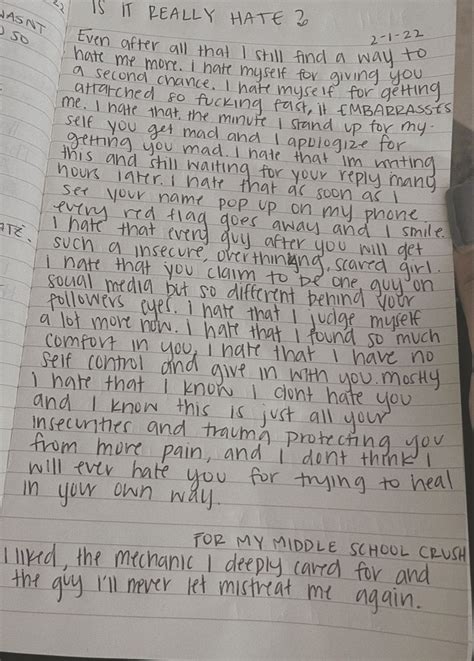 22
IS IT REALLY HATE ?
WASNT
SO
2-1-22
Even after all that I still find a way to
hate me more. I hate myself for giving you
a second chance. I hate myself for getting
attatched so fucking fast, it EMBARRASSES
me. I hate that, the minute I stand up for my-
self you get mad and I apologize for
getting you mad. I hate that im writing
this and still waiting for your reply many
hours later. I hate that as soon as I
see your name pop up on my phone
every red flag goes away and I smile.
ATE.
I hate that every guy after you will get
such a insecure, overthinking, scared girl.
I hate that you claim to be one guy on
social media but so different behind your
followers eyes. I hate that I judge myself
a lot more now. I hate that I found so much
comfort in you, I hate that I have no
self control and give in with you. mostly
I hate that I know I dont hate you
and I know this is just all your
insecurities and trauma protecting you
from more pain, and I dont think I
will ever hate you for trying to heal
in your own way.
FOR MY MIDDLE SCHOOL CRUSH
I liked, the mechanic I deeply cared for and
the guy I'll never let mistreat me again.